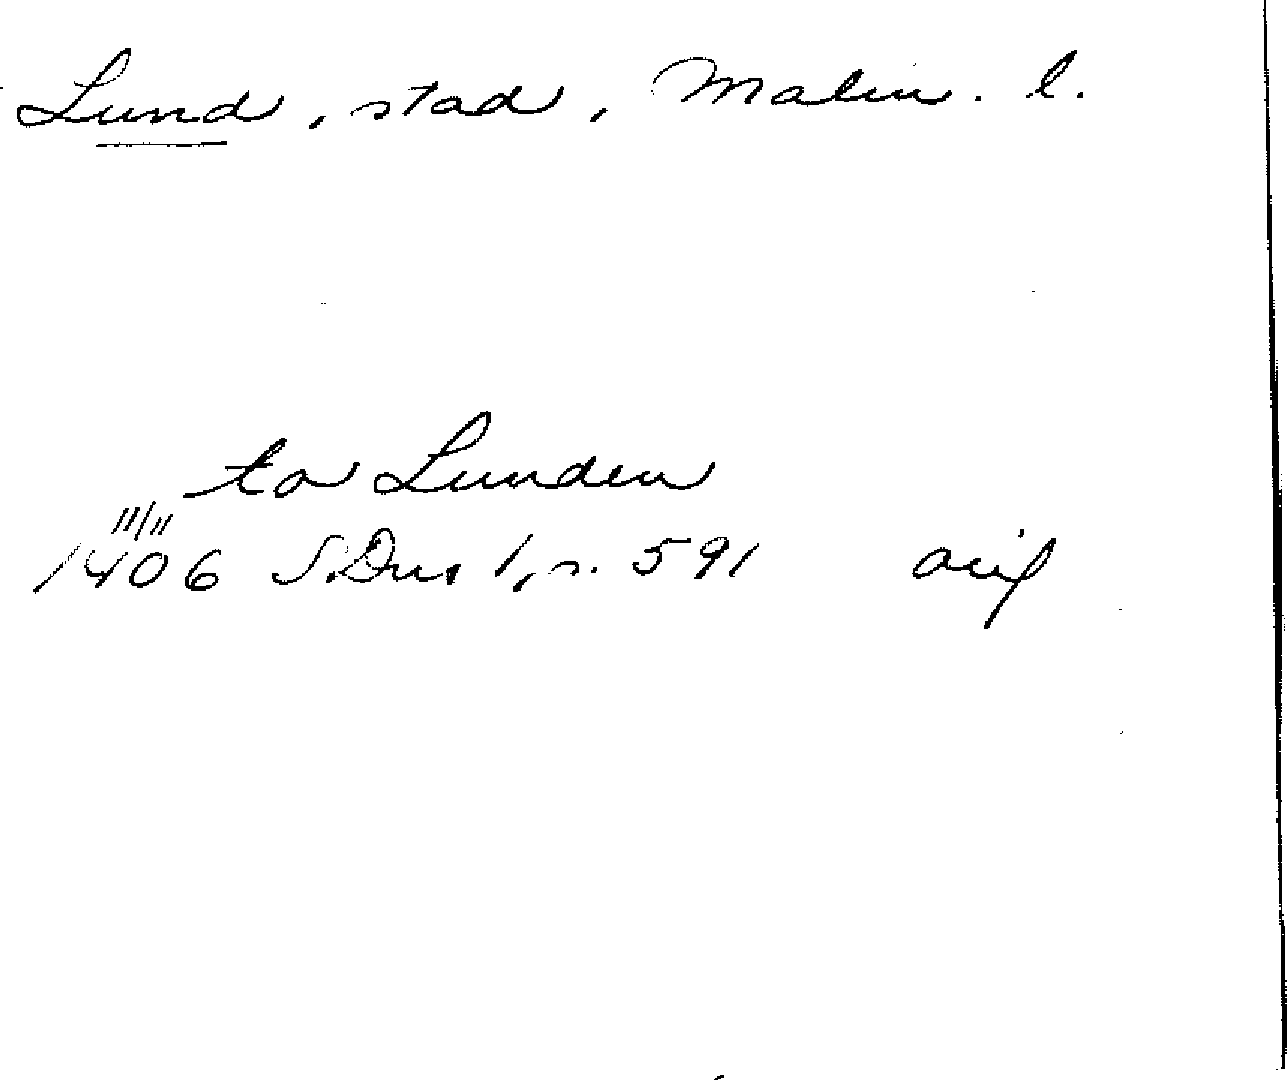 Lund, stad, Malm. l.
to Lunden
11/11
1406 SDns 1, s. 591 orig